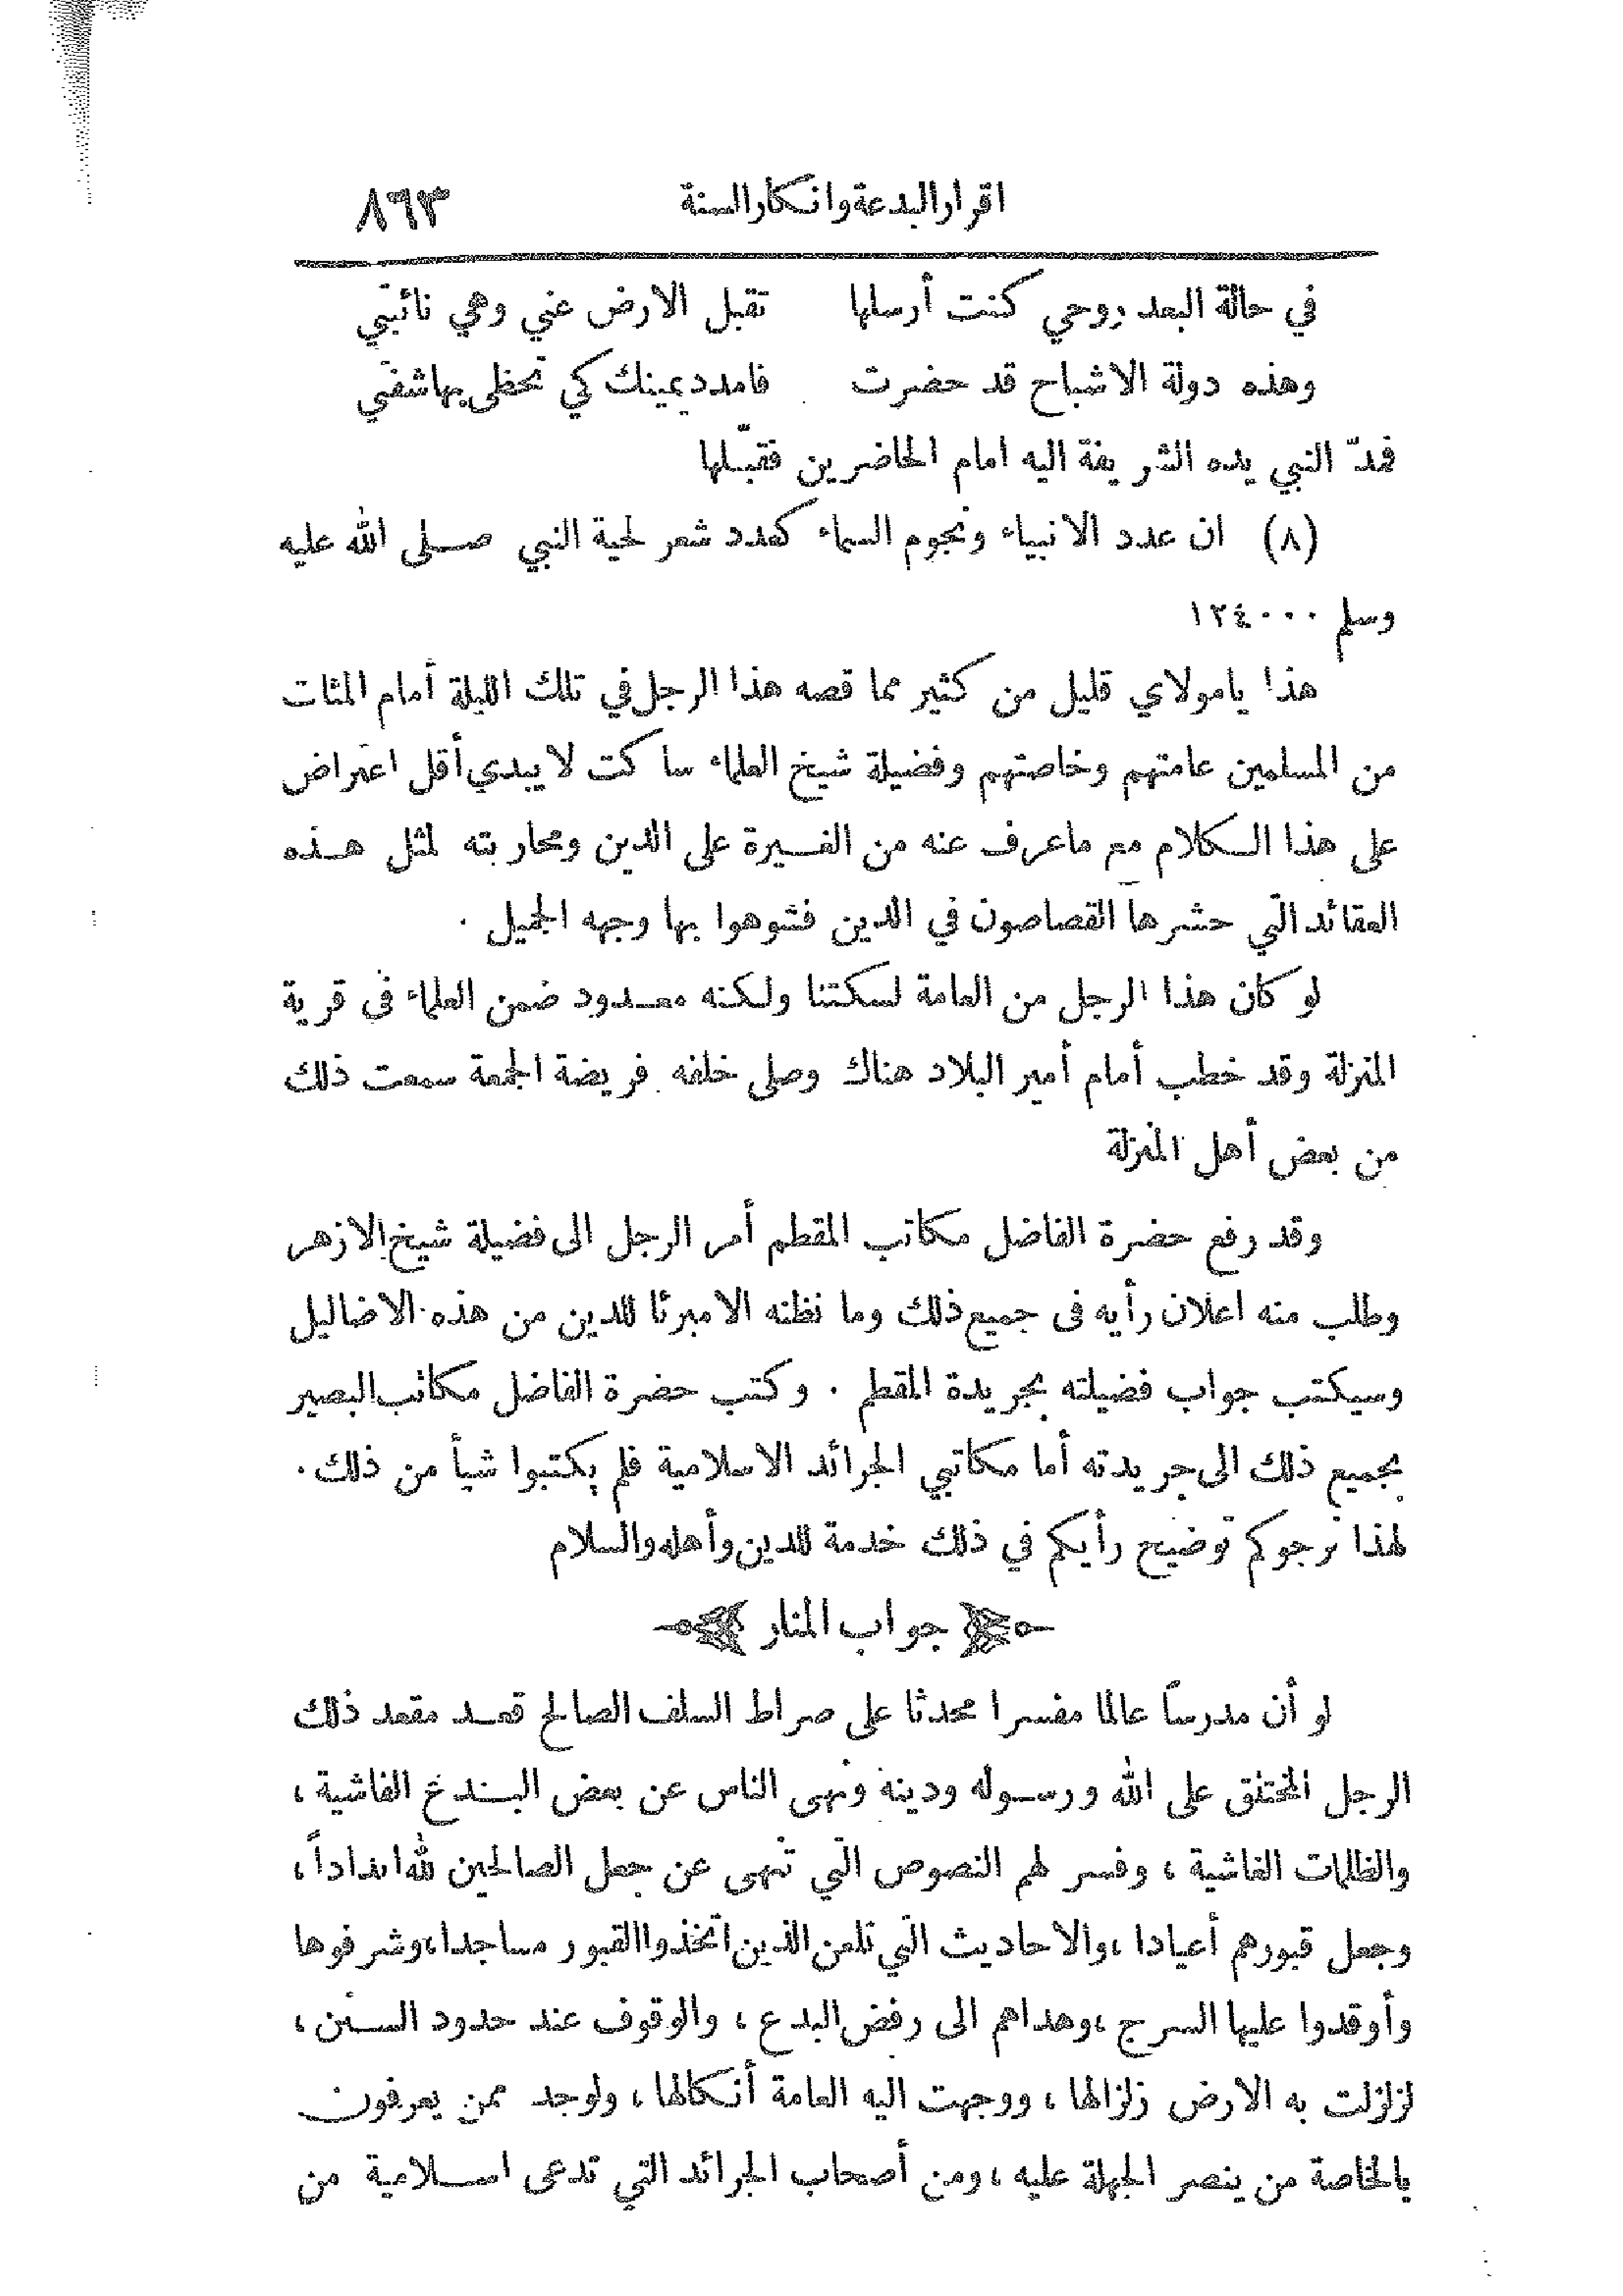 اقرار البدعة وانكار السنة ٨٦٣
في حالة البعد روحي كنت أرسلها تقبل الارض عني وهي نائبتي
وهذه دولة الاشباح قد حضرت فامدد يمينك كي تحظى بها شفتي
فمدّ النبي يده الشريفة اليه امام الحاضرين فقبّلها
(٨) ان عدد الانبياء ونجوم السماء كعدد شعر لحية النبي صلى الله عليه
وسلم ١٢٤٠٠٠
هذا يامولاي قليل من كثير مما قصه هذا الرجل في تلك الليلة أمام المئات
من المسلمين عامتهم وخاصتهم وفضيلة شيخ العلماء ساكت لا يبدي أقل اعتراض
على هذا الكلام مع ماعرف عنه من الغيرة على الدين ومحاربته لمثل هذه
العقائد التي حشرها القصاصون في الدين فشوهوا بها وجهه الجميل .
لو كان هذا الرجل من العامة لسكتنا ولكنه معدود ضمن العلماء فى قرية
المنزلة وقد خطب أمام أمير البلاد هناك وصلى خلفه فريضة الجمعة سمعت ذلك
من بعض أهل المنزلة
وقد رفع حضرة الفاضل مكاتب المقطم أمر الرجل الى فضيلة شيخ الازهر
وطلب منه اعلان رأيه فى جميع ذلك وما نظنه الا مبرئا للدين من هذه الاضاليل
وسيكتب جواب فضيلته بجريدة المقطم . وكتب حضرة الفاضل مكاتب البصير
بجميع ذلك الى جريدته أما مكاتبي الجرائد الاسلامية فلم يكتبوا شيأ من ذلك .
لهذا نرجوكم توضيح رأيكم في ذلك خدمة للدين وأهله والسلام
جواب المنار
لو أن مدرساً عالما مفسرا محدثا على صراط السلف الصالح قعد مقعد ذلك
الرجل المختلق على الله ورسوله ودينه ونهى الناس عن بعض البدع الفاشية ،
والظلمات الغاشية ، وفسر لهم النصوص التي تنهى عن جعل الصالحين لله انداداً ،
وجعل قبورهم أعيادا ، والاحاديث التي تلعن الذين اتخذوا القبور مساجدا ، وشرفوها
وأوقدوا عليها السرج ، وهداهم الى رفض البدع ، والوقوف عند حدود السنن ،
لزلزلت به الارض زلزالها ، ووجهت اليه العامة أنكالها ، ولوجد ممن يعرفون
بالخاصة من ينصر الجهلة عليه ، ومن أصحاب الجرائد التي تدعى اسلامية من